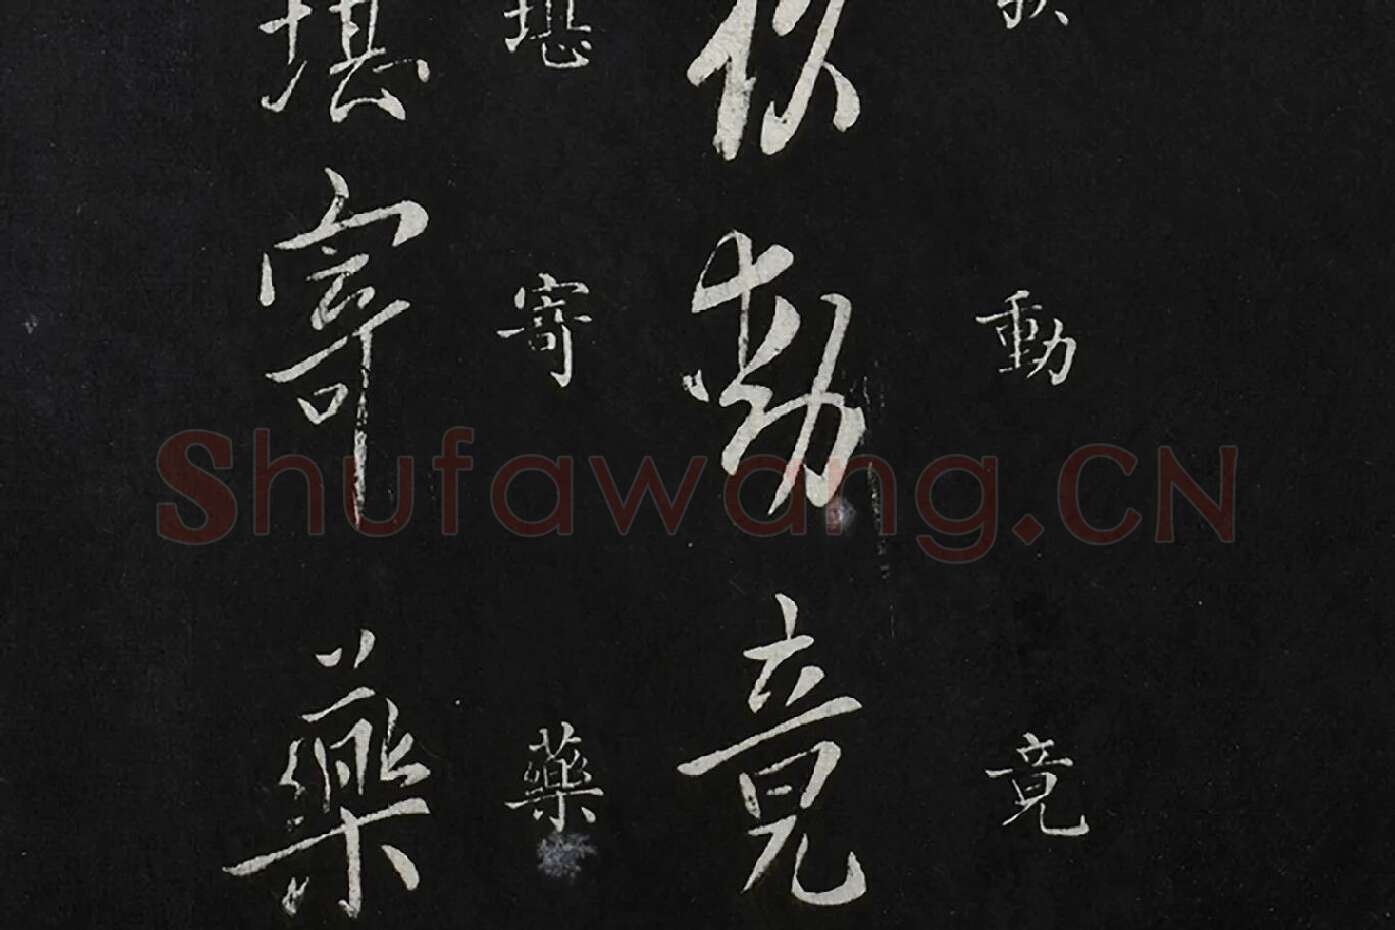 動
竟
動
竟
堪
寄
藥
堪
寄
藥
Shufawang.CN